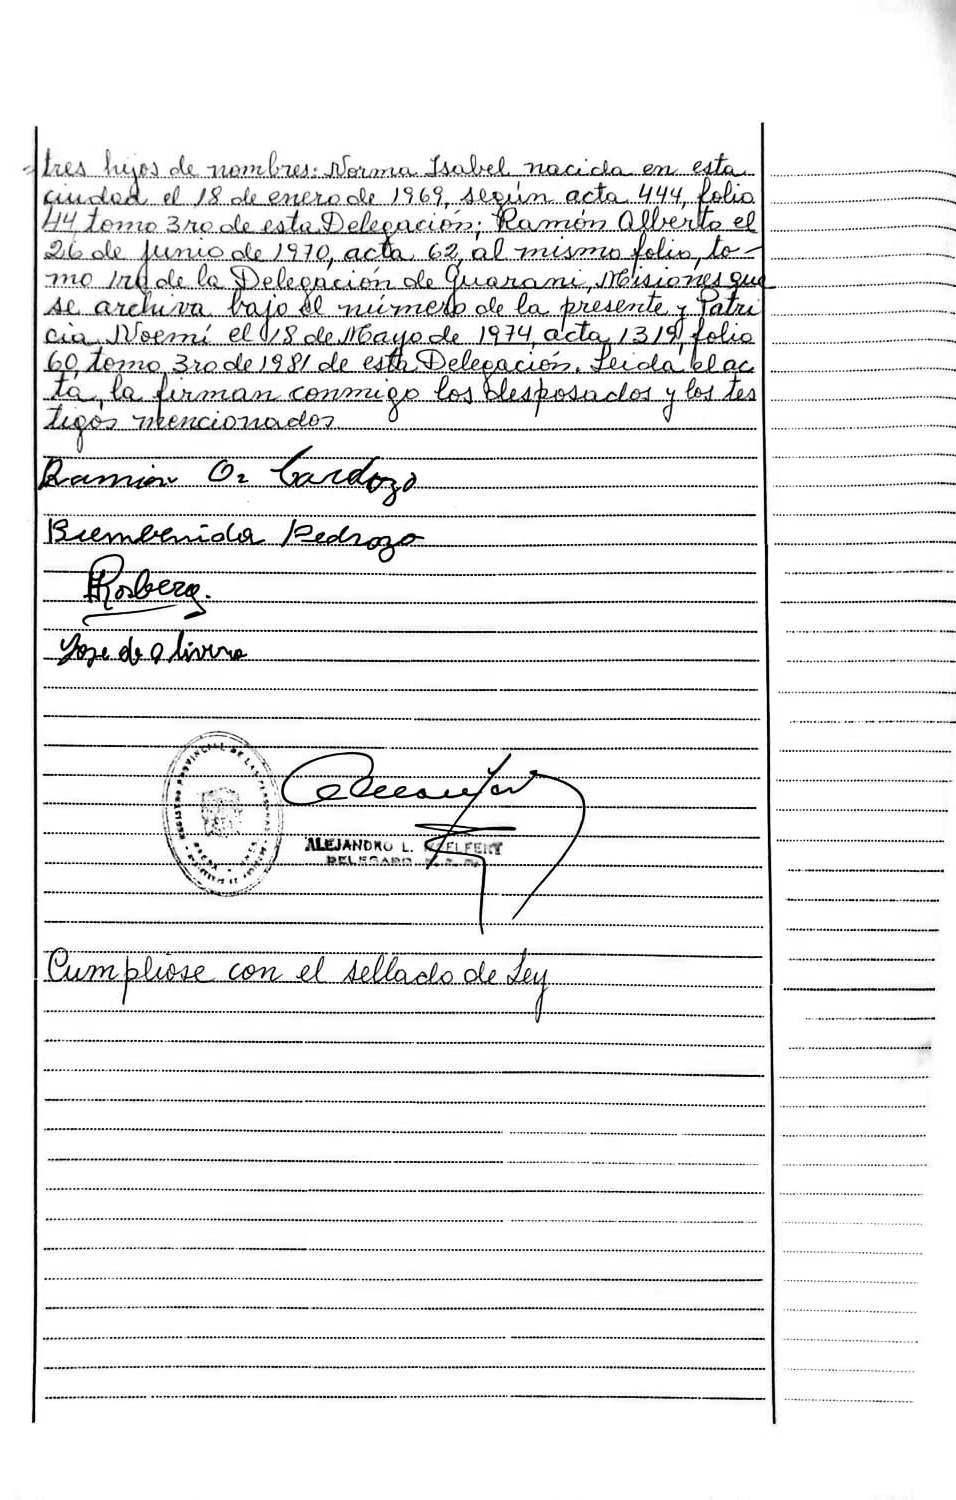 tres hijos de nombres: Norma Isabel nacida en esta
ciudad el 18 de enero de 1969, según acta 444, folio
44 tomo 3ro de esta Delegación; Ramón Alberto el
26 de junio de 1970, acta 62, al mismo folio, to-
mo 1ro de la Delegación de Guarani, Misiones que
se archiva bajo el número de la presente y Patri
cia Noemí el 18 de Mayo de 1974, acta 1319, folio
60, tomo 3ro de 1981 de esta Delegación. Leida el ac
ta, la firman conmigo los desposados y los tes
tigos mencionados
Ramón Oz Cardozo
Biembenida Pedrozo
Rosberg.
Jose de Olivera
REGISTRO PROVINCIAL DE LAS PERSONAS
ALEJANDRO L.
DELEGADO
Cumpliose con el sellado de Ley